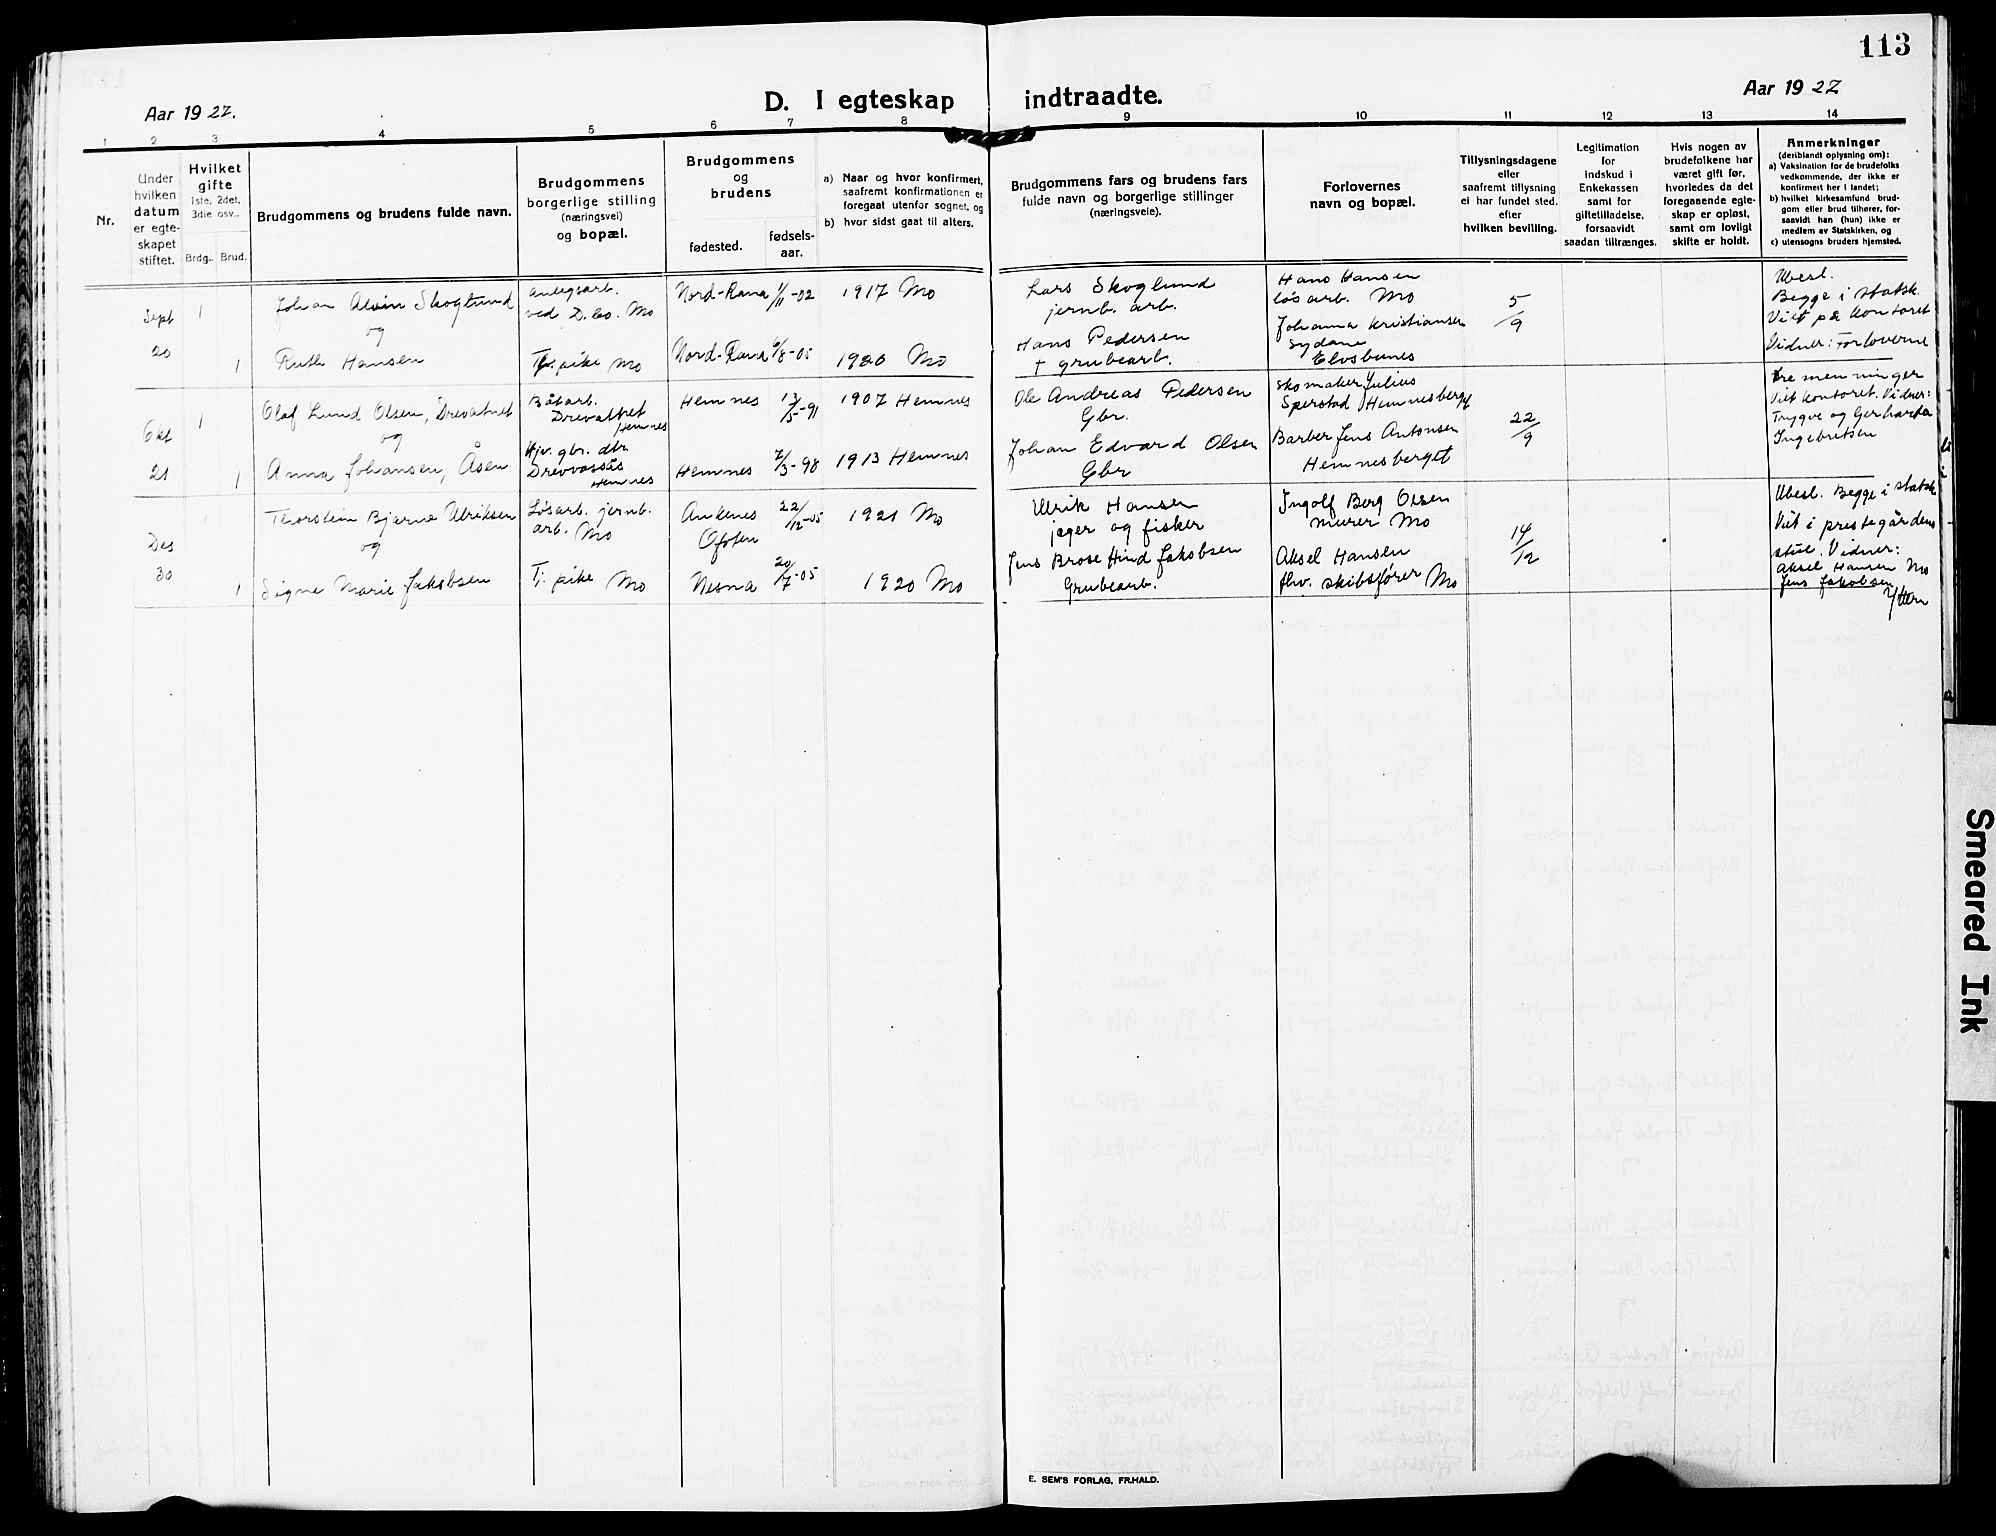 113
Aar 1927.
D. I egteskap indtraadte.
Aar 1927
1 2 3 4 5 6 7 8 9 10 11 12 13 14
Nr.
Under
hvilken
datum
er egte-
skapet
stiftet.
Hvilket
gifte
1ste, 2det,
3die osv..
Brdg.. Brud.
Brudgommens og brudens fulde navn.
Brudgommens
borgerlige stilling
(næringsvei)
og bopæl.
Brudgommens
og
brudens
fødested.
fødsels-
aar.
a) Naar og hvor konfirmert,
saafremt konfirmationen er
foregaat utenfor sognet, og
b) hvor sidst gaat til alters.
Brudgommens fars og brudens fars
fulde navn og borgerlige stillinger
(næringsveie).
Forlovernes
navn og bopæl.
Tillysningsdagene
eller
saafremt tillysning
ei har fundet sted.
efter
hvilken bevilling.
Legitimation
for
indskud i
Enkekassen
samt for
giftetilladelse,
forsaavidt
saadan tiltrænges.
Hvis nogen av
brudefolkene har
været gift før,
hvorledes da det
foregaaende egte-
skap er opløst,
samt om lovligt
skifte er holdt.
Anmerkninger
(deriblandt oplysning om):
a) Vaksination for de brudefolks
vedkommende, der ikke er
konfirmert her i landet;
b) hvilket kirkesamfund brud-
gom eller brud tilhører, for-
saavidt han (hun) ikke er
medlem av Statskirken, og
c) utensogns bruders hjemsted.
Sept
20
1
1
Johan Alvin Skoglund
og
Ruth Hansen
anlegsarb.
ved D. co. Mo
Tj. pike Mo
Nord-Rana 1/11-02
Nord-Rana 6/8-05
1917 Mo
1920 Mo
Lars Skoglund
jernb. arb.
Hans Pedersen
† grubearb.
Hans Hansen
løsarb. Mo
Johanna Kristiansen
Elvsbunes
5/9
Ubesl.
Begge i statsk.
Viet på kontoret
Vidner: Forloverne
Okt
21
1
1
Olaf Lund Olsen, Drevatnet
og
Anna Johansen, Åsen
Båtarb.
Drevatnet
Hemnes
Hjv. gbr. dtr
Drevvassås
Hemnes
Hemnes 13/5-91
Hemnes 7/3-98
1907 Hemnes
1913 Hemnes
Ole Andreas Pedersen
Gbr.
Johan Edvard Olsen
Gbr
Skomaker Julius
Sperstad Hemnesberget
Barber Jens Antonsen
Hemnesberget
22/9
Tremenninger
Viet kontoret. Vidner:
Trygve og Gerharda
Ingebretsen
Des
30
1
1
Thorstein Bjarne Ulriksen
og
Signe Marie Jakobsen
Løsarb. jernb.
arb. Mo
Tj. pike Mo
Ankenes
Ofoten
22/12-05
Nesna 20/7-05
1921 Mo
1920 Mo
Ulrik Hansen
jæger og fisker
Jens Brose Hind Jakobsen
Grubearb.
Ingolf Berg Olsen
murer Mo
Aksel Hansen
fhv. skibsfører Mo
14/12
Ubesl. Begge i statsk
Viet i prestegårdens
stue. Vidner:
Aksel Hansen Mo
Jens Jakobsen
Ytteren
E. SEM'S FORLAG, FR.HALD.
Smeared Ink